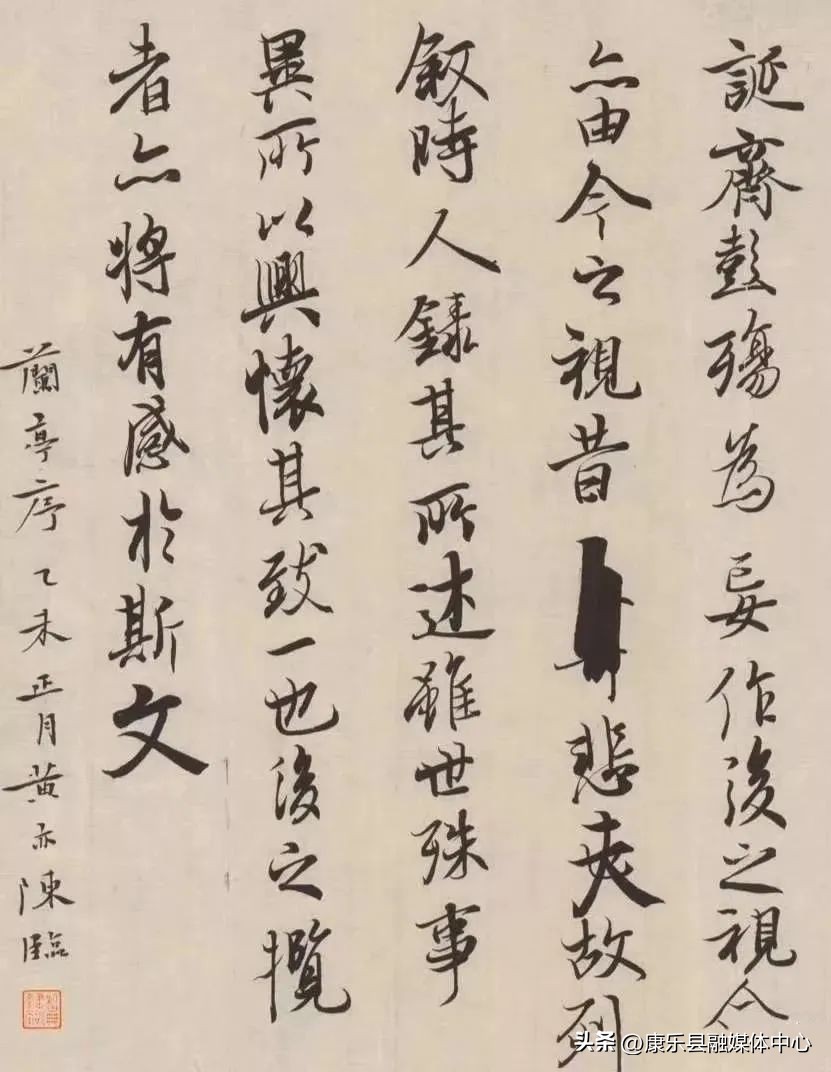 誕齊彭殤為妄作後之視今
亦由今之視昔悲夫故列
叙時人錄其所述雖世殊事
異所以興懷其致一也後之攬
者亦將有感於斯文
蘭亭序乙未正月黄亦陳臨
头条 @康乐县融媒体中心